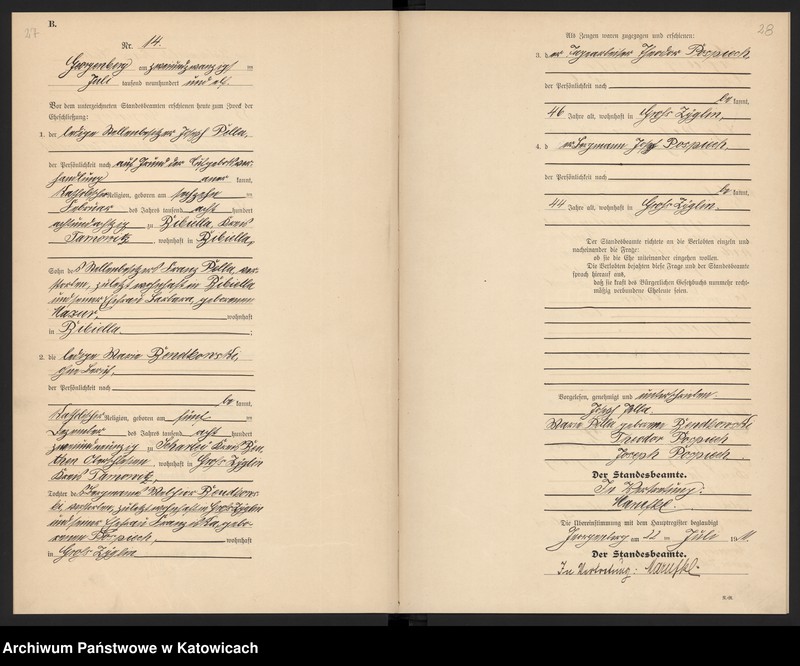 27
B.
Nr. 14.
Georgenberg am zweiundzwanzigsten
Juli tausend neunhundert und elf.
Vor dem unterzeichneten Standesbeamten erschienen heute zum Zweck der
Eheschließung:
1. der ledige Stellenbesitzer Joseph Pella,
der Persönlichkeit nach auf Grund der Aufgebotsver-
handlung aner kannt,
katholischer Religion, geboren am sechzehnten
Februar des Jahres tausend acht hundert
achtundachtzig zu Bibiella, Kreis
Tarnowitz, wohnhaft in Bibiella,
Sohn des Stellenbesitzers Franz Pella, ver-
storben, zuletzt wohnhaft in Bibiella
und seiner Ehefrau Barbara, geborenen
Mazur, wohnhaft
in Bibiella ;
2. die ledige Marie Bendkowski,
der Persönlichkeit nach
be kannt,
katholischer Religion, geboren am fünften
Dezember des Jahres tausend acht hundert
zweiundneunzig zu Scharley Kreis Beu-
then Oberschlesien, wohnhaft in Groß Zyglin
Kreis Tarnowitz
Tochter des Bergmanns Melchior Bendkows-
ki, verstorben, zuletzt wohnhaft in Groß Zyglin
und seiner Ehefrau Franziska, gebo-
renen Pospiech, wohnhaft
in Groß Zyglin
28
Als Zeugen waren zugezogen und erschienen:
3. der Joseph Theodor Pospiech
der Persönlichkeit nach
be kannt,
46 Jahre alt, wohnhaft in Groß Zyglin,
4. der Bergmann Joseph Pospiech,
der Persönlichkeit nach
be kannt,
44 Jahre alt, wohnhaft in Groß Zyglin.
Der Standesbeamte richtete an die Verlobten einzeln und
nacheinander die Frage:
ob sie die Ehe miteinander eingehen wollen.
Die Verlobten bejahten diese Frage und der Standesbeamte
sprach hierauf aus,
daß sie kraft des Bürgerlichen Gesetzbuchs nunmehr recht-
mäßig verbundene Eheleute seien.
Vorgelesen, genehmigt und unterschrieben.
Joseph Pella
Marie Pella geborene Bendkowski
Theodor Pospiech
Joseph Pospiech
Der Standesbeamte.
In Vertretung:
Die Übereinstimmung mit dem Hauptregister beglaubigt
Georgenberg am 22 ten Juli 1911.
Der Standesbeamte.
In Vertretung:
Archiwum Państwowe w Katowicach